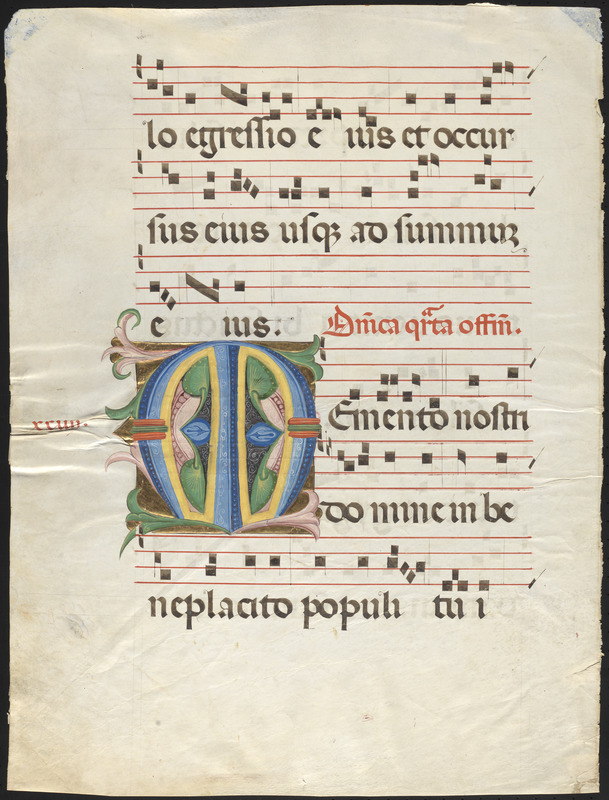 lo egressio e ius et occur
sus eius usq₃ ad summuꝫ
e ius:
Dn̄ica qr̄ta offm̄.
xxiiii.
MEmento nostri
do mine in be
neplacito populi tu i